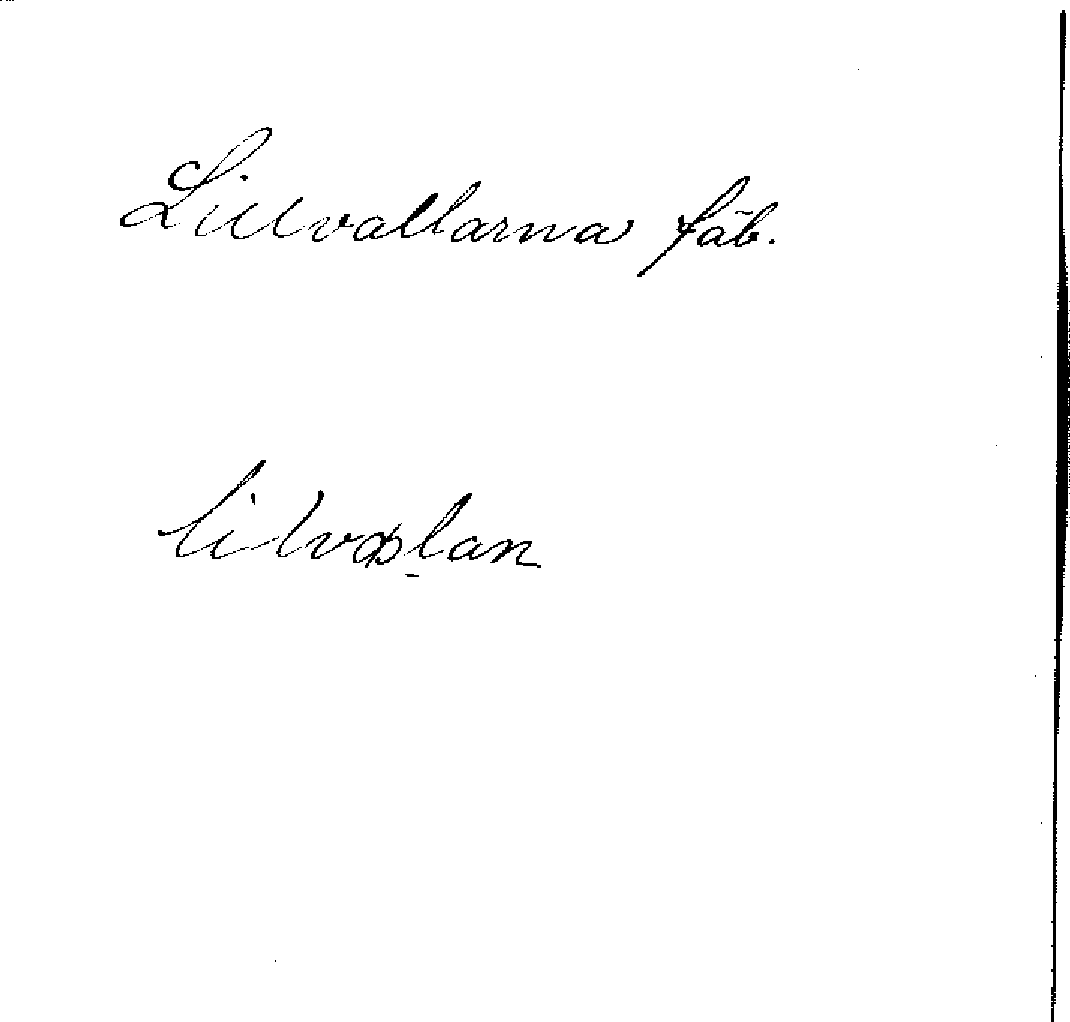 Lillvallarna fäb.
lilvɒl̠an